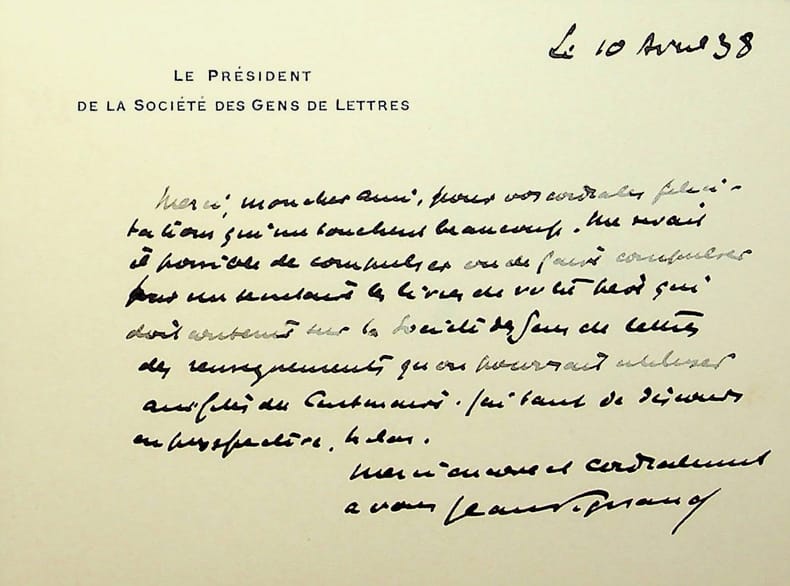 Le 10 Avril 38
LE PRÉSIDENT
DE LA SOCIÉTÉ DES GENS DE LETTRES
Merci, mon cher ami, pour vos cordiales félici-
tations qui me touchent beaucoup. Me serait
il possible de compulser ou de faire compulser
par un secrétaire les livres de votre père qui
doit contenir sur la Société des Gens de lettres
des renseignements qu'on pourrait utiliser
aux fêtes du Centenaire. J'ai tant de discours
en perspective, hélas.
Merci encore et cordialement
à vous Jean Vignaud